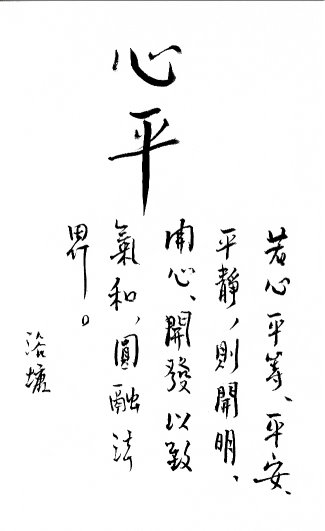 心平
若心平等、平安、
平靜，則開明、
開心、開發以致
氣和，圓融法
界。
浴壚